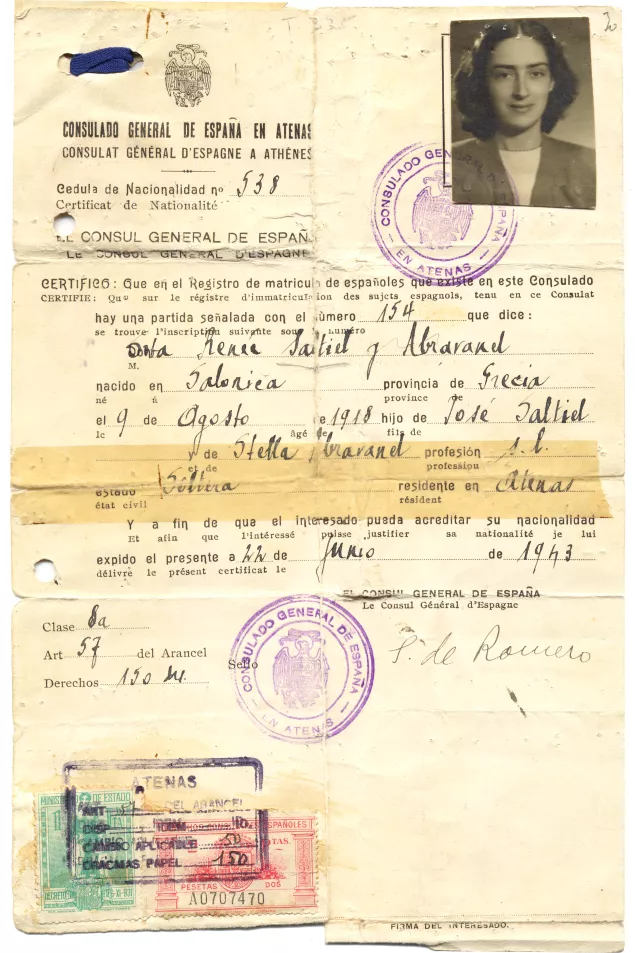 30
CONSULADO GENERAL DE ESPAÑA EN ATENAS
CONSULAT GÉNÉRAL D'ESPAGNE A ATHÈNES
CONSULADO GENERAL DE ESPAÑA
EN ATENAS
Cedula de Nacionalidad nº 538
Certificat de Nationalité
EL CONSUL GENERAL DE ESPAÑ
LE CONSUL GENERAL D'ESPAGNE
CERTIFICO: Que en el Registro de matricula de españoles que existe en este Consulado
CERTIFIE: Que sur le régistre d'immatriculation des sujets espagnols, tenu en ce Consulat
hay una partida señalada con el número 154 que dice:
se trouve l'inscription suivante sous numéro
Doña Renée Saltiel y Abravanel
M.
nacido en Salonica provincia de Grecia
né à province de
el 9 de Agosto de 1918 hijo de José Saltiel
le âgé de fils de
y de Stella Abravanel profesión s.l.
et de profession
estado Soltera residente en Atenas
état civil résident
Y a fin de que el interesado pueda acreditar su nacionalidad
Et afin que l'intéressé puisse justifier sa nationalité je lui
expido el presente a 22 de Junio de 1943
délivré le présent certificat le
EL CONSUL GENERAL DE ESPAÑA
Le Consul Général d'Espagne
Clase 8a
Art 57 del Arancel
Derechos 150
Sello
CONSULADO GENERAL DE ESPAÑA
EN ATENAS
S. de Romero
ATENAS
ART DEL ARANCEL
CAMBIO APLICABLE 50
DRACMAS PAPEL 150
DE ESTADO
ESPAÑOLES
PESETAS DOS
A0707470
FIRMA DEL INTERESADO.